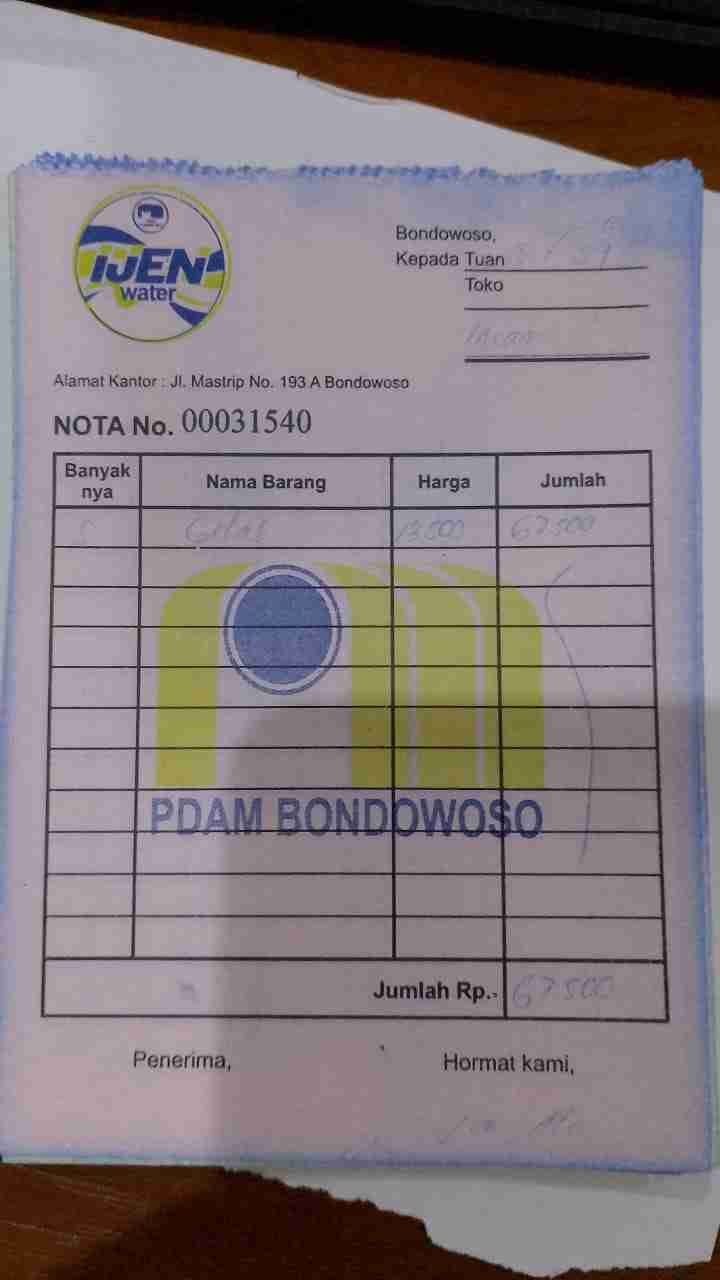 IJEN
water
Bondowoso,
Kepada Tuan
Toko
Alamat Kantor : Jl. Mastrip No. 193 A Bondowoso
NOTA No. 00031540
Banyak nya Nama Barang Harga Jumlah
Gelas 13500 67500
PDAM BONDOWOSO
Jumlah Rp.- 67500
Penerima, Hormat kami,